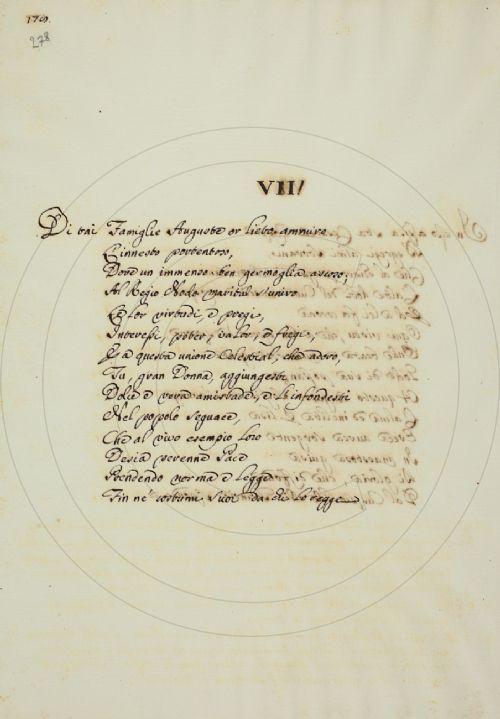 278
VII
Di tai Famiglie Auguste or lieto ammiro
L'innesto portentoso,
Dove un immenso ben germoglia ascoso;
Al Regio Nodo marital s'uniro
Le lor virtudi e pregi,
Interessi, poter, valor, e fregi,
E a questa unione Celestial, che adoro,
Tu, gran Donna, aggiungesti
Dolce e vera amistade, e lo infondesti
Nel popolo seguace,
Che al vivo esempio loro
Desia perenne Pace
Prendendo norma e legge
Fin ne' costumi suoi da chi lo regge